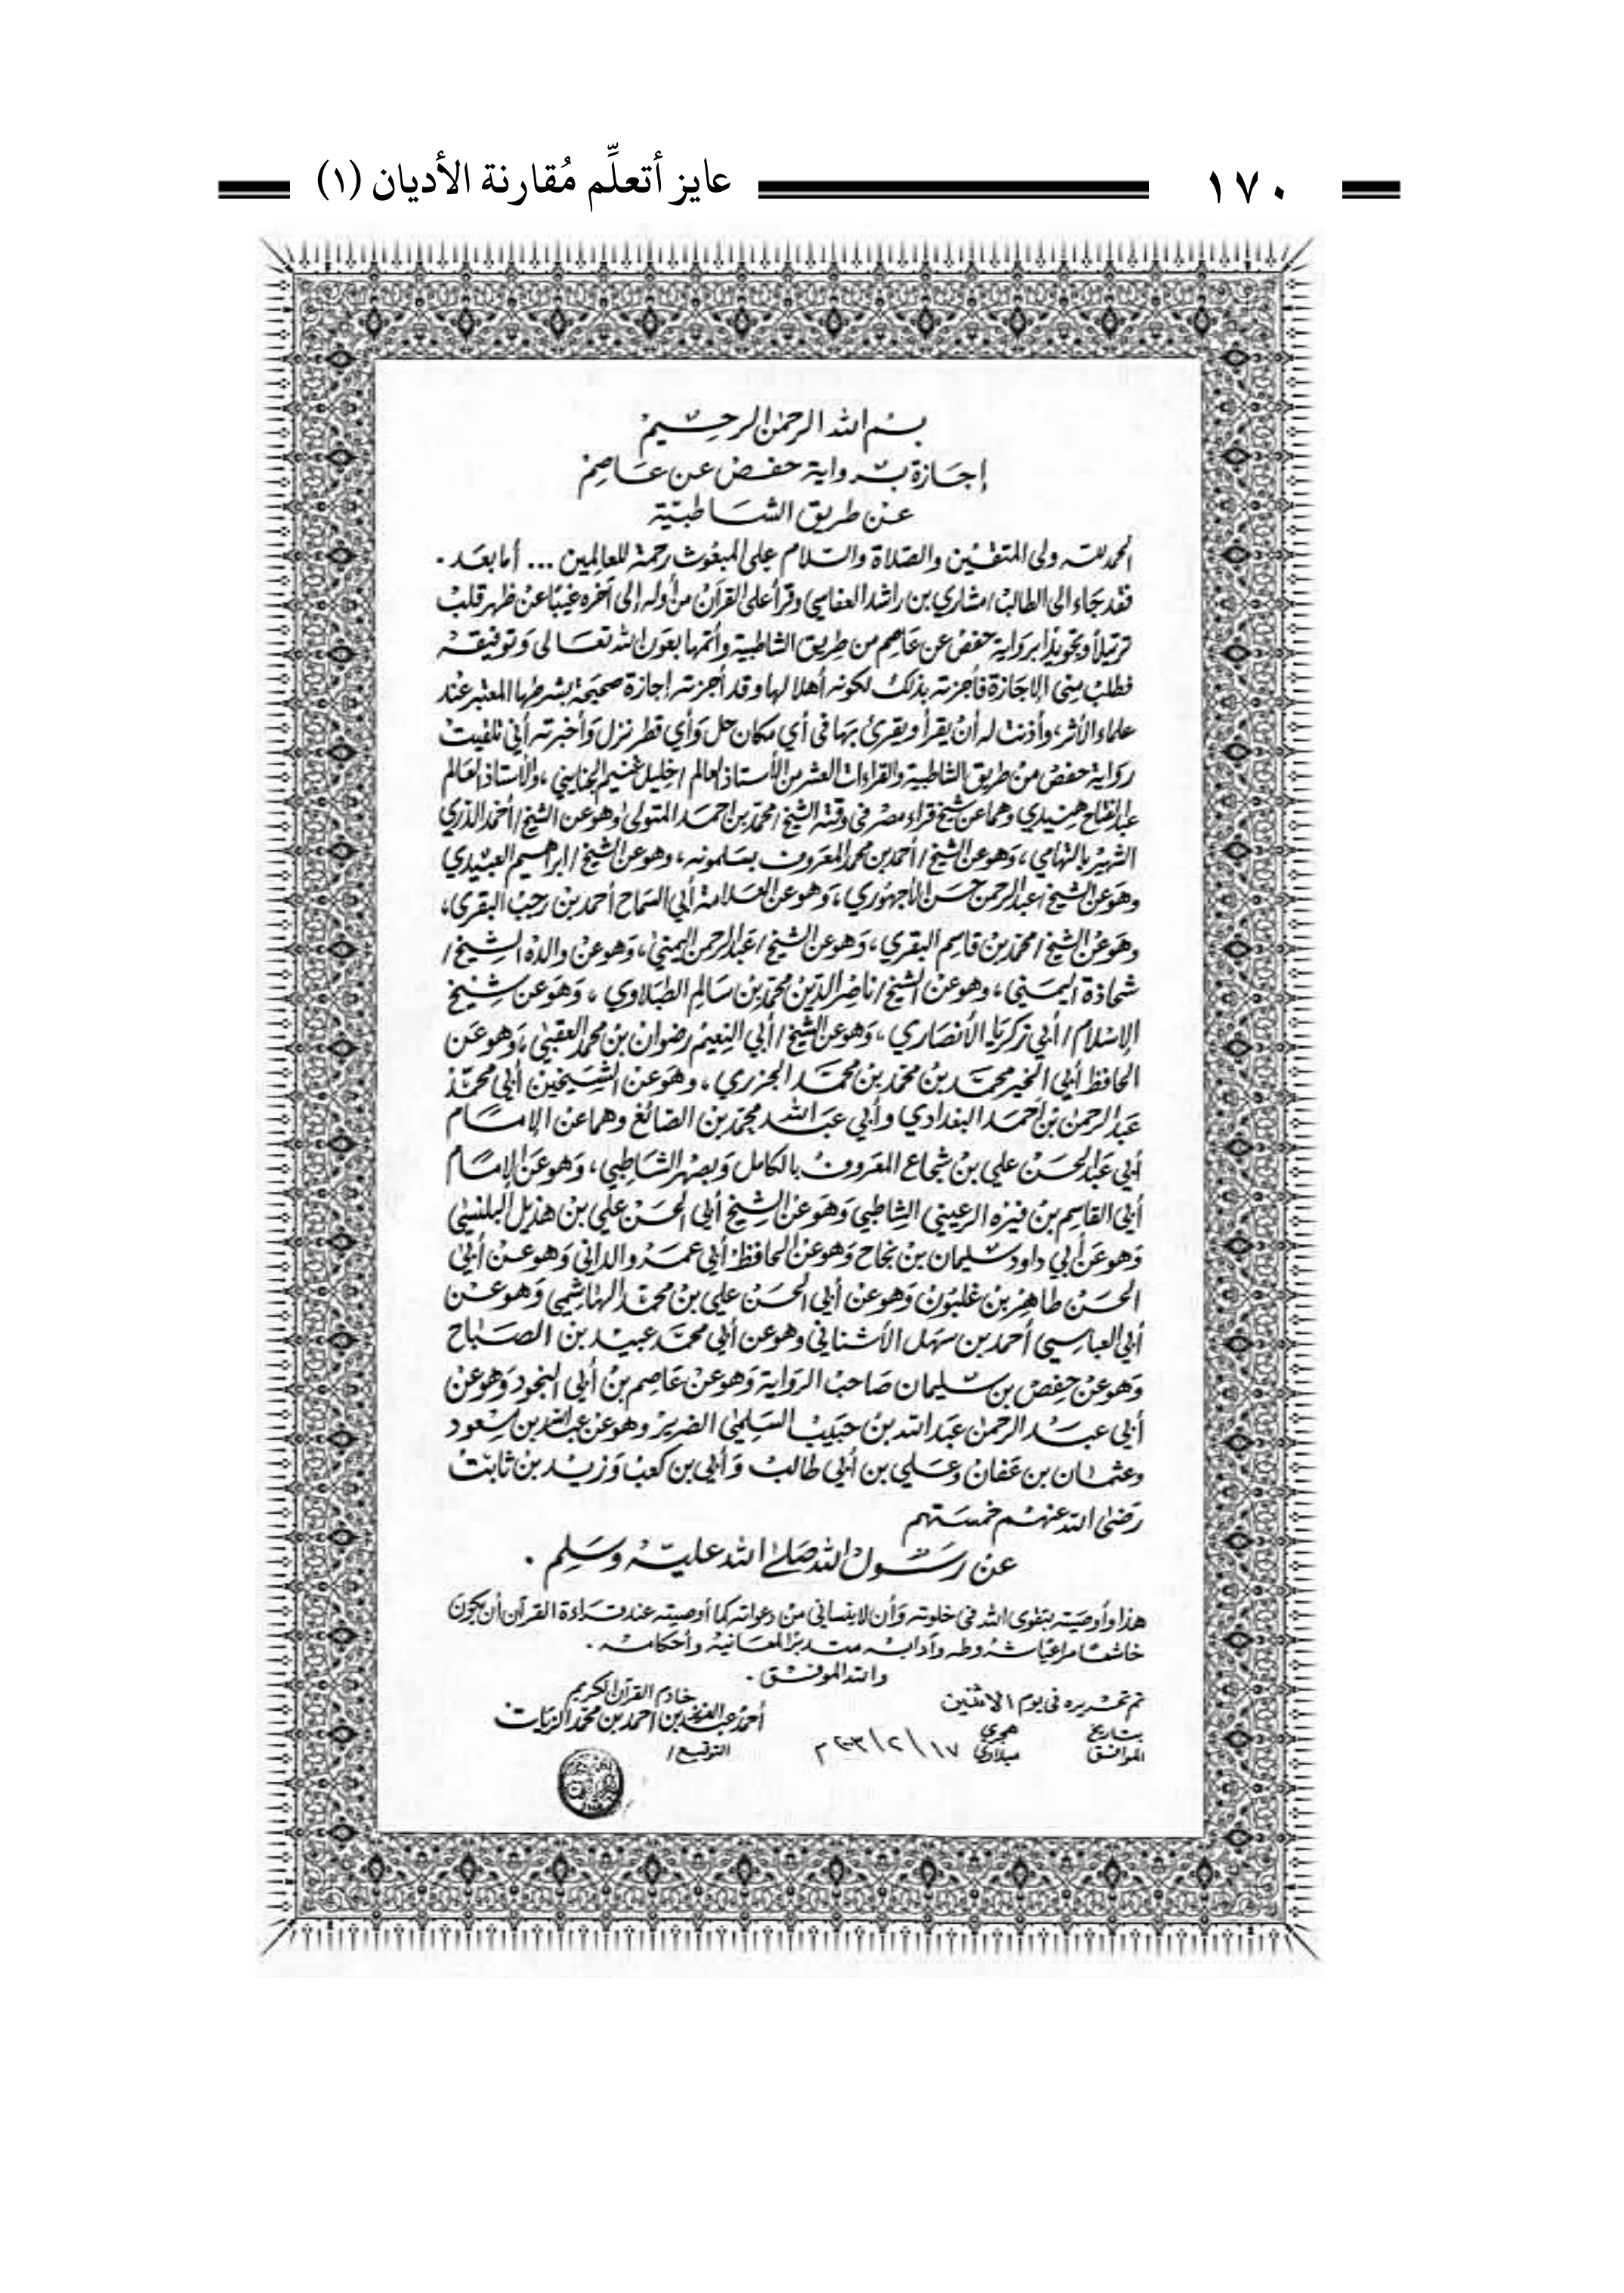 ١٧٠ عايز أتعلِّم مُقارنة الأديان (١)
بسم الله الرحمن الرحيم
إجازة برواية حفص عن عاصم
عن طريق الشاطبية
الحمد لله ولي المتقين والصلاة والسلام على المبعوث رحمة للعالمين ... أما بعد .
فقد جاء الى الطالب / مشاري بن راشد العفاسي وقرأ علي القرآن من أوله إلى آخره غيبًا عن ظهر قلب
ترتيلاً وتجويدًا برواية حفص عن عاصم من طريق الشاطبية وأتمها بعون الله تعالى وتوفيقه
فطلب مني الإجازة فأجزته بذلك لكونه أهلا لها وقد أجزته إجازة صحيحة بشرطها المعتبر عند
علماء الأثر، وأذنت له أن يقرأ ويقرئ بها في أي مكان حل وأي قطر نزل وأخبرته أني تلقيت
رواية حفص من طريق الشاطبية والقراءات العشر من الأستاذ العالم / خليل غنيم الجنايني ، والأستاذ العالم
عبد الفتاح هنيدي وهما عن شيخ قراء مصر في وقته الشيخ / محمد بن احمد المتولى وهو عن الشيخ / أحمد الدري
الشهير بالتهامي ، وهو عن الشيخ / أحمد بن محمد المعروف بسلمونه ، وهو عن الشيخ / ابراهيم العبيدي
وهو عن الشيخ / عبد الرحمن حسن الأجهوري ، وهو عن العلامة أبي السماح أحمد بن رجب البقري ،
وهو عن الشيخ / محمد بن قاسم البقري ، وهو عن الشيخ / عبد الرحمن اليمني ، وهو عن والده الشيخ /
شحاذة اليمني ، وهو عن الشيخ / ناصر الدين محمد بن سالم الطبلاوي ، وهو عن شيخ
الإسلام / أبي زكريا الأنصاري ، وهو عن الشيخ / أبي النعيم رضوان بن محمد العقبي ، وهو عن
الحافظ أبي الخير محمد بن محمد بن محمد الجزري ، وهو عن الشيخين أبي محمد
عبد الرحمن بن أحمد البغدادي وأبي عبد الله محمد بن الصائغ وهما عن الإمام
أبي عبد الحسن علي بن شجاع المعروف بالكامل وبصهر الشاطبي ، وهو عن الإمام
أبي القاسم بن فيره الرعيني الشاطبي وهو عن الشيخ أبي الحسن علي بن هذيل البلنسي
وهو عن أبي داود سليمان بن نجاح وهو عن الحافظ أبي عمرو الداني وهو عن أبي
الحسن طاهر بن غلبون وهو عن أبي الحسن علي بن محمد الهاشمي وهو عن
أبي العباسي أحمد بن سهل الأشناني وهو عن أبي محمد عبيد بن الصباح
وهو عن حفص بن سليمان صاحب الرواية وهو عن عاصم بن أبي النجود وهو عن
أبي عبد الرحمن عبد الله بن حبيب السلمي الضرير وهو عن عبد الله بن مسعود
وعثمان بن عفان وعلي بن أبي طالب وأبي بن كعب وزيد بن ثابت
رضى الله عنهم خمستهم
عن رسول الله صلى الله عليه وسلم .
هذا وأوصيته بتقوى الله في خلوته وأن لا ينساني من دعواته كما أوصيته عند قراءة القرآن أن يكون
خاشعا مراعيا شروطه وآدابه متدبرا لمعانيه وأحكامه .
والله الموفق .
تم تحريره في يوم الاثنين
خادم القرآن الكريم
أحمد عبد العزيز بن أحمد بن محمد الزيات
بتاريخ هجري
الموافق ميلادي ١٧/٢/ م
التوقيع /